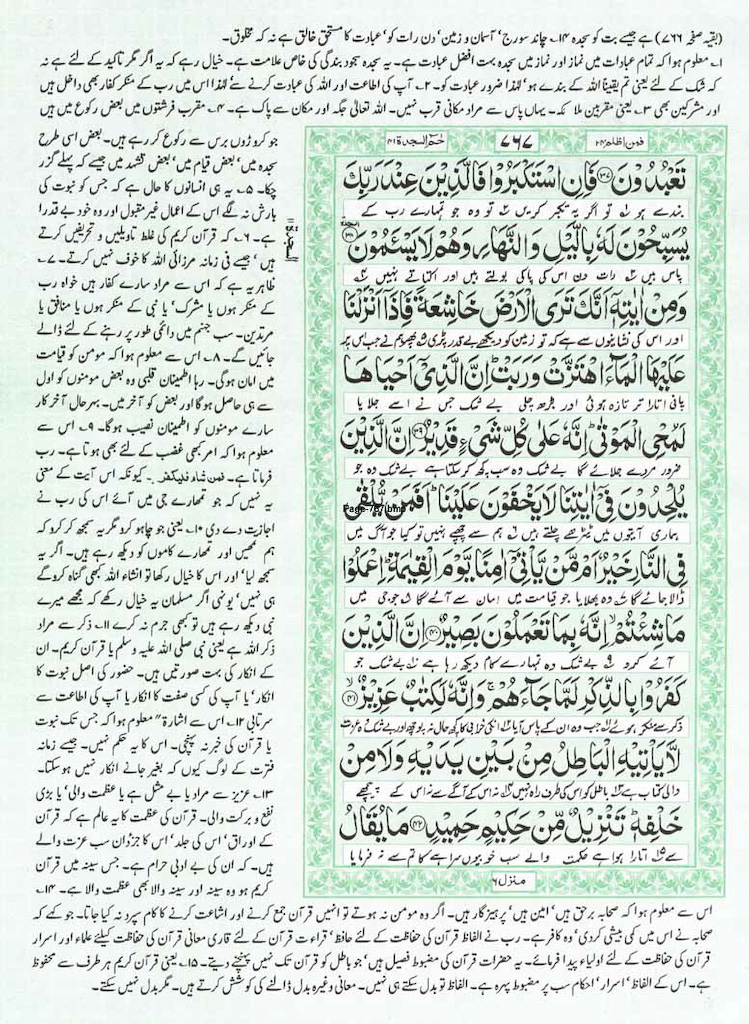 (بقیہ صفحہ ۷۶۶) ہے جیسے بت کو سجدہ ۱۴۔ چاند سورج' آسمان و زمین' دن رات کو' عبادت کا مستحق خالق ہے نہ کہ مخلوق۔
۱۔ معلوم ہوا کہ تمام عبادات میں نماز اور نماز میں سجدہ بہت افضل عبادت ہے۔ یہ سجدہ سجود بندگی کی خاص علامت ہے۔ خیال رہے کہ یہ اگر مگر تاکید کے لئے ہے نہ
کہ شک کے لئے یعنی تم یقیناً اللہ کے بندے ہو' لہٰذا ضرور عبادت کرو ۲۔ آپ کی اطاعت اور اللہ کی عبادت کرنے سے' لہٰذا اس میں رب کے منکر کفار بھی داخل ہیں
اور مشرکین بھی ۳۔ یعنی مقربین ملائکہ۔ یہاں پاس سے مراد مکانی قرب نہیں۔ اللہ تعالٰی جگہ اور مکان سے پاک ہے۔ ۴۔ مقرب فرشتوں میں بعض رکوع میں ہیں
فمن اظلم ۲۴
۷۶۷
حٰم السجدۃ ۴۱
تَعْبُدُوْنَ ﴿۳۷﴾ فَاِنِ اسْتَكْبَرُوْا فَالَّذِيْنَ عِنْدَ رَبِّكَ
بندے ہو تو اگر یہ تکبر کریں تو وہ جو تمہارے رب کے
يُسَبِّحُوْنَ لَهٗ بِالَّيْلِ وَالنَّهَارِ وَهُمْ لَا يَسْئَمُوْنَ ﴿۳۸﴾
پاس ہیں رات دن اس کی پاکی بولتے ہیں اور اکتاتے نہیں
وَمِنْ اٰيٰتِهٖۤ اَنَّكَ تَرَى الْاَرْضَ خَاشِعَةً فَاِذَاۤ اَنْزَلْنَا
اور اس کی نشانیوں سے ہے کہ تو زمین کو دیکھے بے قدر پڑی پھر جب ہم نے اس پر
عَلَيْهَا الْمَآءَ اهْتَزَّتْ وَرَبَتْ اِنَّ الَّذِيْۤ اَحْيَاهَا
پانی اتارا تر و تازہ ہوئی اور بڑھ چلی بے شک جس نے اسے جلایا
لَمُحْيِ الْمَوْتٰى اِنَّهٗ عَلٰى كُلِّ شَيْءٍ قَدِيْرٌ ﴿۳۹﴾ اِنَّ الَّذِيْنَ
ضرور مردے جلائے گا بے شک وہ سب کچھ کر سکتا ہے بے شک وہ جو
يُلْحِدُوْنَ فِيْۤ اٰيٰتِنَا لَا يَخْفَوْنَ عَلَيْنَا اَفَمَنْ يُّلْقٰى
ہماری آیتوں میں ٹیڑھے چلتے ہیں ہم سے چھپے نہیں تو کیا جو آگ میں
فِي النَّارِ خَيْرٌ اَمْ مَّنْ يَّاْتِيْۤ اٰمِنًا يَّوْمَ الْقِيٰمَةِ اِعْمَلُوْا
ڈالا جائے گا وہ بھلا یا جو قیامت میں امان سے آئے گا جو جی میں
مَا شِئْتُمْ اِنَّهٗ بِمَا تَعْمَلُوْنَ بَصِيْرٌ ﴿۴۰﴾ اِنَّ الَّذِيْنَ
آئے کرو بے شک وہ تمہارے کام دیکھ رہا ہے بے شک جو
كَفَرُوْا بِالذِّكْرِ لَمَّا جَآءَهُمْ وَاِنَّهٗ لَكِتٰبٌ عَزِيْزٌ ﴿۴۱﴾
ذکر سے منکر ہوئے جب وہ ان کے پاس آیا ان کی خرابی کا کچھ حال نہ پوچھ اور بے شک وہ عزت
لَّا يَاْتِيْهِ الْبَاطِلُ مِنْ بَيْنِ يَدَيْهِ وَلَا مِنْ
والی کتاب ہے باطل کو اس کی طرف راہ نہیں نہ اس کے آگے سے نہ اس کے پیچھے
خَلْفِهٖ تَنْزِيْلٌ مِّنْ حَكِيْمٍ حَمِيْدٍ ﴿۴۲﴾ مَا يُقَالُ
سے اتارا ہوا ہے حکمت والے سب خوبیوں سراہے کا تم سے نہ فرمایا
منزل ۶
السجدۃ ۱۱
جو کروڑوں برس سے رکوع کر رہے ہیں۔ بعض اسی طرح
سجدہ میں' بعض قیام میں' بعض تشہد میں جیسے کہ پہلے گزر
چکا۔ ۵۔ یہ ہی انسانوں کا حال ہے کہ جس کو نبوت کی
بارش نہ لگے اس کے اعمال غیر مقبول اور وہ خود بے قدرا
ہے۔ ۶۔ کہ قرآن کریم کی غلط تاویلیں و تحریفیں کرتے
ہیں' جیسے فی زمانہ مرزائی اللہ کا خوف نہیں کرتے۔ ۷۔
ظاہر یہ ہے کہ اس سے مراد سارے کافر ہیں خواہ رب
کے منکر ہوں یا مشرک' یا نبی کے منکر ہوں یا منافق یا
مرتدین۔ سب جہنم میں دائمی طور پر رہنے کے لئے ڈالے
جائیں گے۔ ۸۔ اس سے معلوم ہوا کہ مومن کو قیامت
میں امان ہوگی۔ رہا اطمینان قلبی وہ بعض مومنوں کو اول
سے ہی حاصل ہوگا اور بعض کو آخر میں۔ بہرحال آخر کار
سارے مومنوں کو اطمینان نصیب ہوگا۔ ۹۔ اس سے
معلوم ہوا کہ امر کبھی غضب کے لئے بھی ہوتا ہے۔ رب
فرماتا ہے۔ فمن شاء فليكفر۔ کیونکہ اس آیت کے معنی
یہ نہیں کہ جو تمہارے جی میں آئے اس کی رب نے
اجازت دے دی ۱۰۔ یعنی جو چاہو کرو مگر یہ سمجھ کر کرو کہ
ہم تمہیں اور تمہارے کاموں کو دیکھ رہے ہیں۔ اگر یہ
سمجھ لیا' اور اس کا خیال رکھا تو انشاء اللہ کبھی گناہ کرو گے
ہی نہیں' یونہی اگر مسلمان یہ خیال رکھے کہ مجھے میرے
نبی دیکھ رہے ہیں تو کبھی جرم نہ کرے ۱۱۔ ذکر سے مراد
ذکر اللہ ہے یعنی نبی صلی اللہ علیہ وسلم یا قرآن کریم۔ ان
کے انکار کی بہت صورتیں ہیں۔ حضور کی اصل نبوت کا
انکار' یا آپ کی کسی صفت کا انکار یا آپ کی اطاعت سے
سرتابی ۱۲۔ اس سے اشارۃً معلوم ہوا کہ جس تک نبوت
یا قرآن کی خبر نہ پہنچی۔ اس کا یہ حکم نہیں۔ جیسے زمانہ
فترت کے لوگ کیوں کہ بغیر جانے انکار نہیں ہو سکتا۔
۱۳۔ عزیز سے مراد یا بے مثل ہے یا عظمت والی' یا بڑی
نفع و برکت والی۔ قرآن کی عظمت کا یہ عالم ہے کہ قرآن
کے اوراق' اس کی جلد' اس کا جزدان سب عزت والے
ہیں۔ کہ ان کی بے ادبی حرام ہے۔ جس سینہ میں قرآن
کریم ہو وہ سینہ اور سینہ والا بھی عظمت والا ہے۔ ۱۴۔
اس سے معلوم ہوا کہ صحابہ برحق ہیں' امین ہیں' پرہیزگار ہیں۔ اگر وہ مومن نہ ہوتے تو انہیں قرآن جمع کرنے اور اشاعت کرنے کا کام سپرد نہ کیا جاتا۔ جو کہے کہ
صحابہ نے اس میں کمی بیشی کر دی' وہ کافر ہے۔ رب نے الفاظ قرآن کی حفاظت کے لئے حافظ' قراءت قرآن کے لئے قاری معانی قرآن کی حفاظت کیلئے علماء اور اسرار
قرآن کی حفاظت کے لئے اولیاء پیدا فرمائے۔ یہ حضرات قرآن کی مضبوط فصیل ہیں' جو باطل کو قرآن تک نہیں پہنچنے دیتے۔ ۱۵۔ یعنی قرآن کریم ہر طرف سے محفوظ
ہے۔ اس کے الفاظ' اسرار' احکام سب پر مضبوط پہرہ ہے۔ الفاظ تو بدل سکتے ہی نہیں۔ معانی وغیرہ بدل ڈالنے کی کوشش کرتے ہیں۔ مگر بدل نہیں سکتے۔